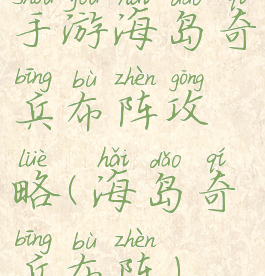 shǒu yóu hǎi dǎo qí
手游海岛奇
bīng bù zhèn gōng
兵布阵攻
lüè hǎi dǎo qí
略(海岛奇
bīng bù zhèn
兵布阵)